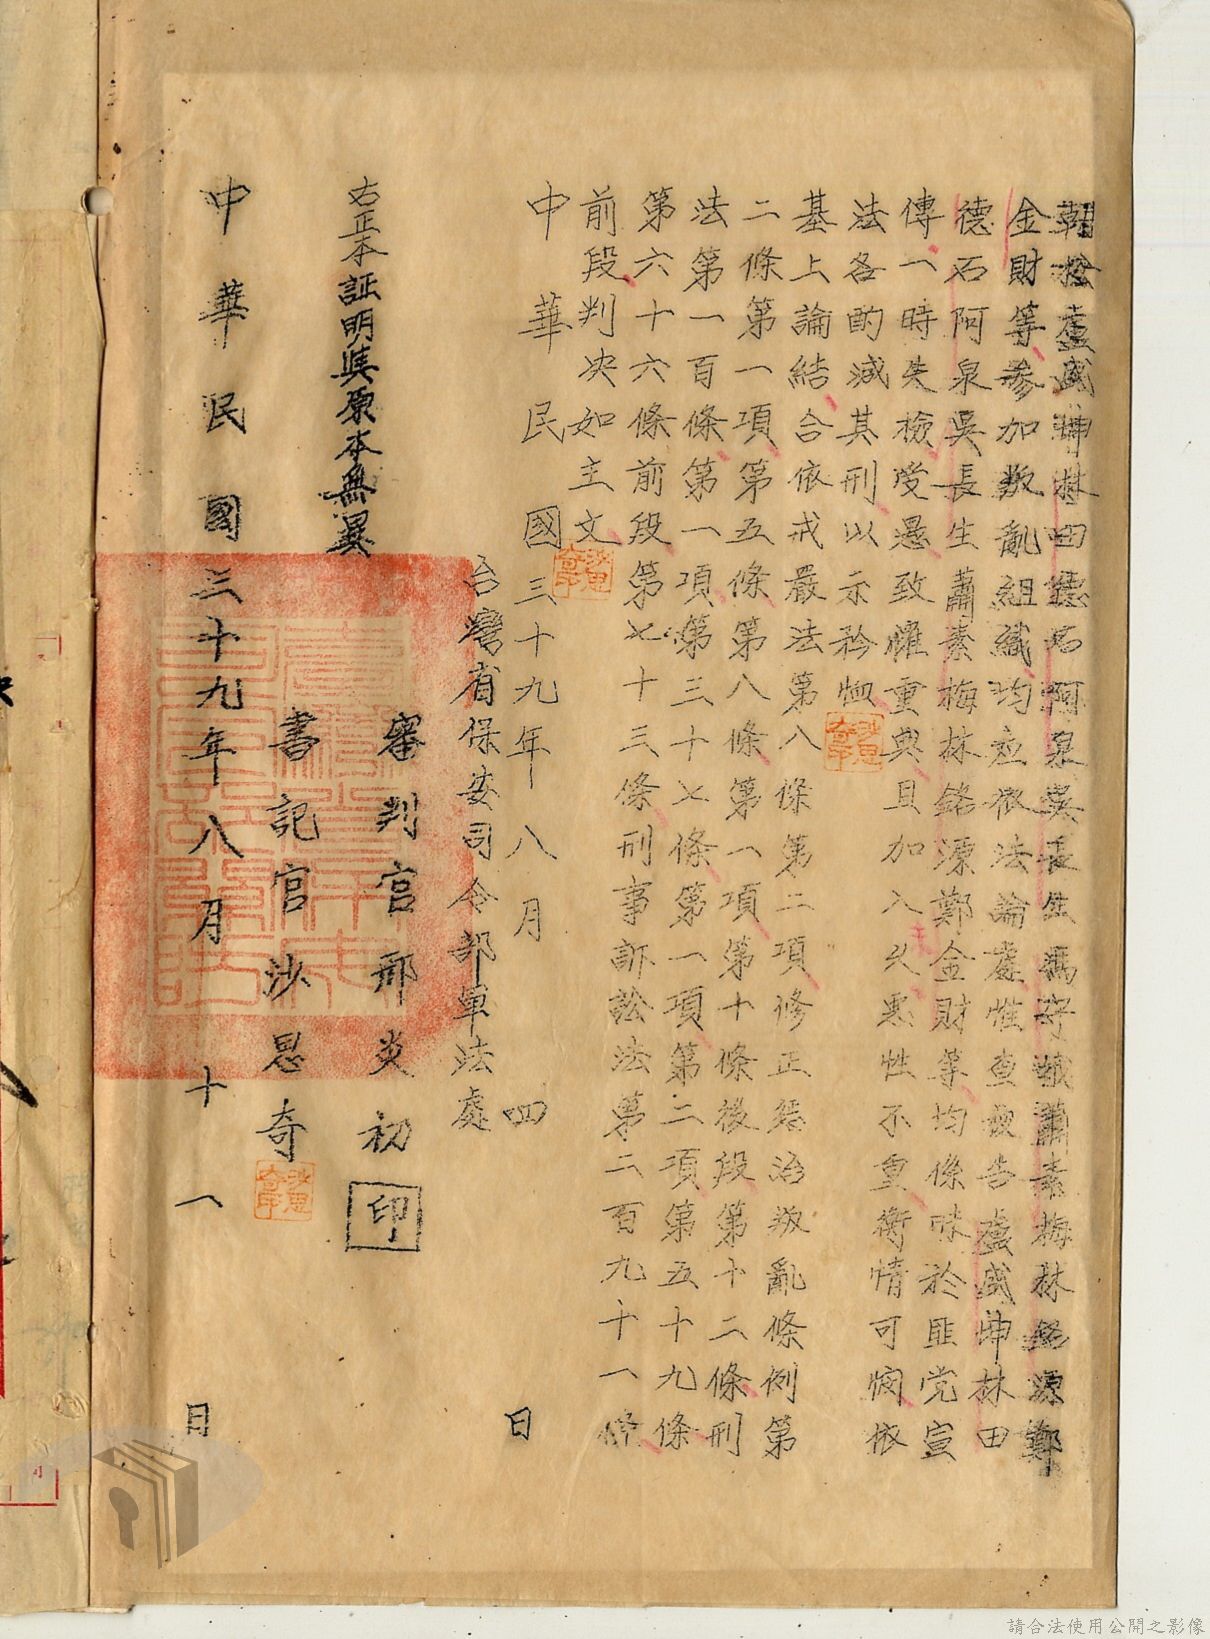 朝松盧盛坤林田德石阿泉吳長生馮守娥蕭素梅林銘源鄭
金財等參加叛亂組織均應依法論處惟查被告盧盛坤林田
德石阿泉吳長生蕭素梅林銘源鄭金財等均係昧於匪党宣
傳一時失檢受愚致罹重典且加入未久惡性不重衡情可憫依
法各酌減其刑以示矜恤
基上論結合依戒嚴法第八條第二項修正懲治叛亂條例第
二條第一項第五條第八條第一項第十條後段第十二條刑
法第一百條第一項第三十七條第一項第二項第五十九條
第六十六條前段第七十三條刑事訴訟法第二百九十一條
前段判决如主文
中華民國三十九年八月四日
台灣省保安司令部軍法處
審判官邢炎初印
右正本証明與原本無異
書記官沙思奇
中華民國三十九年八月十八日
沙思奇印
請合法使用公開之影像